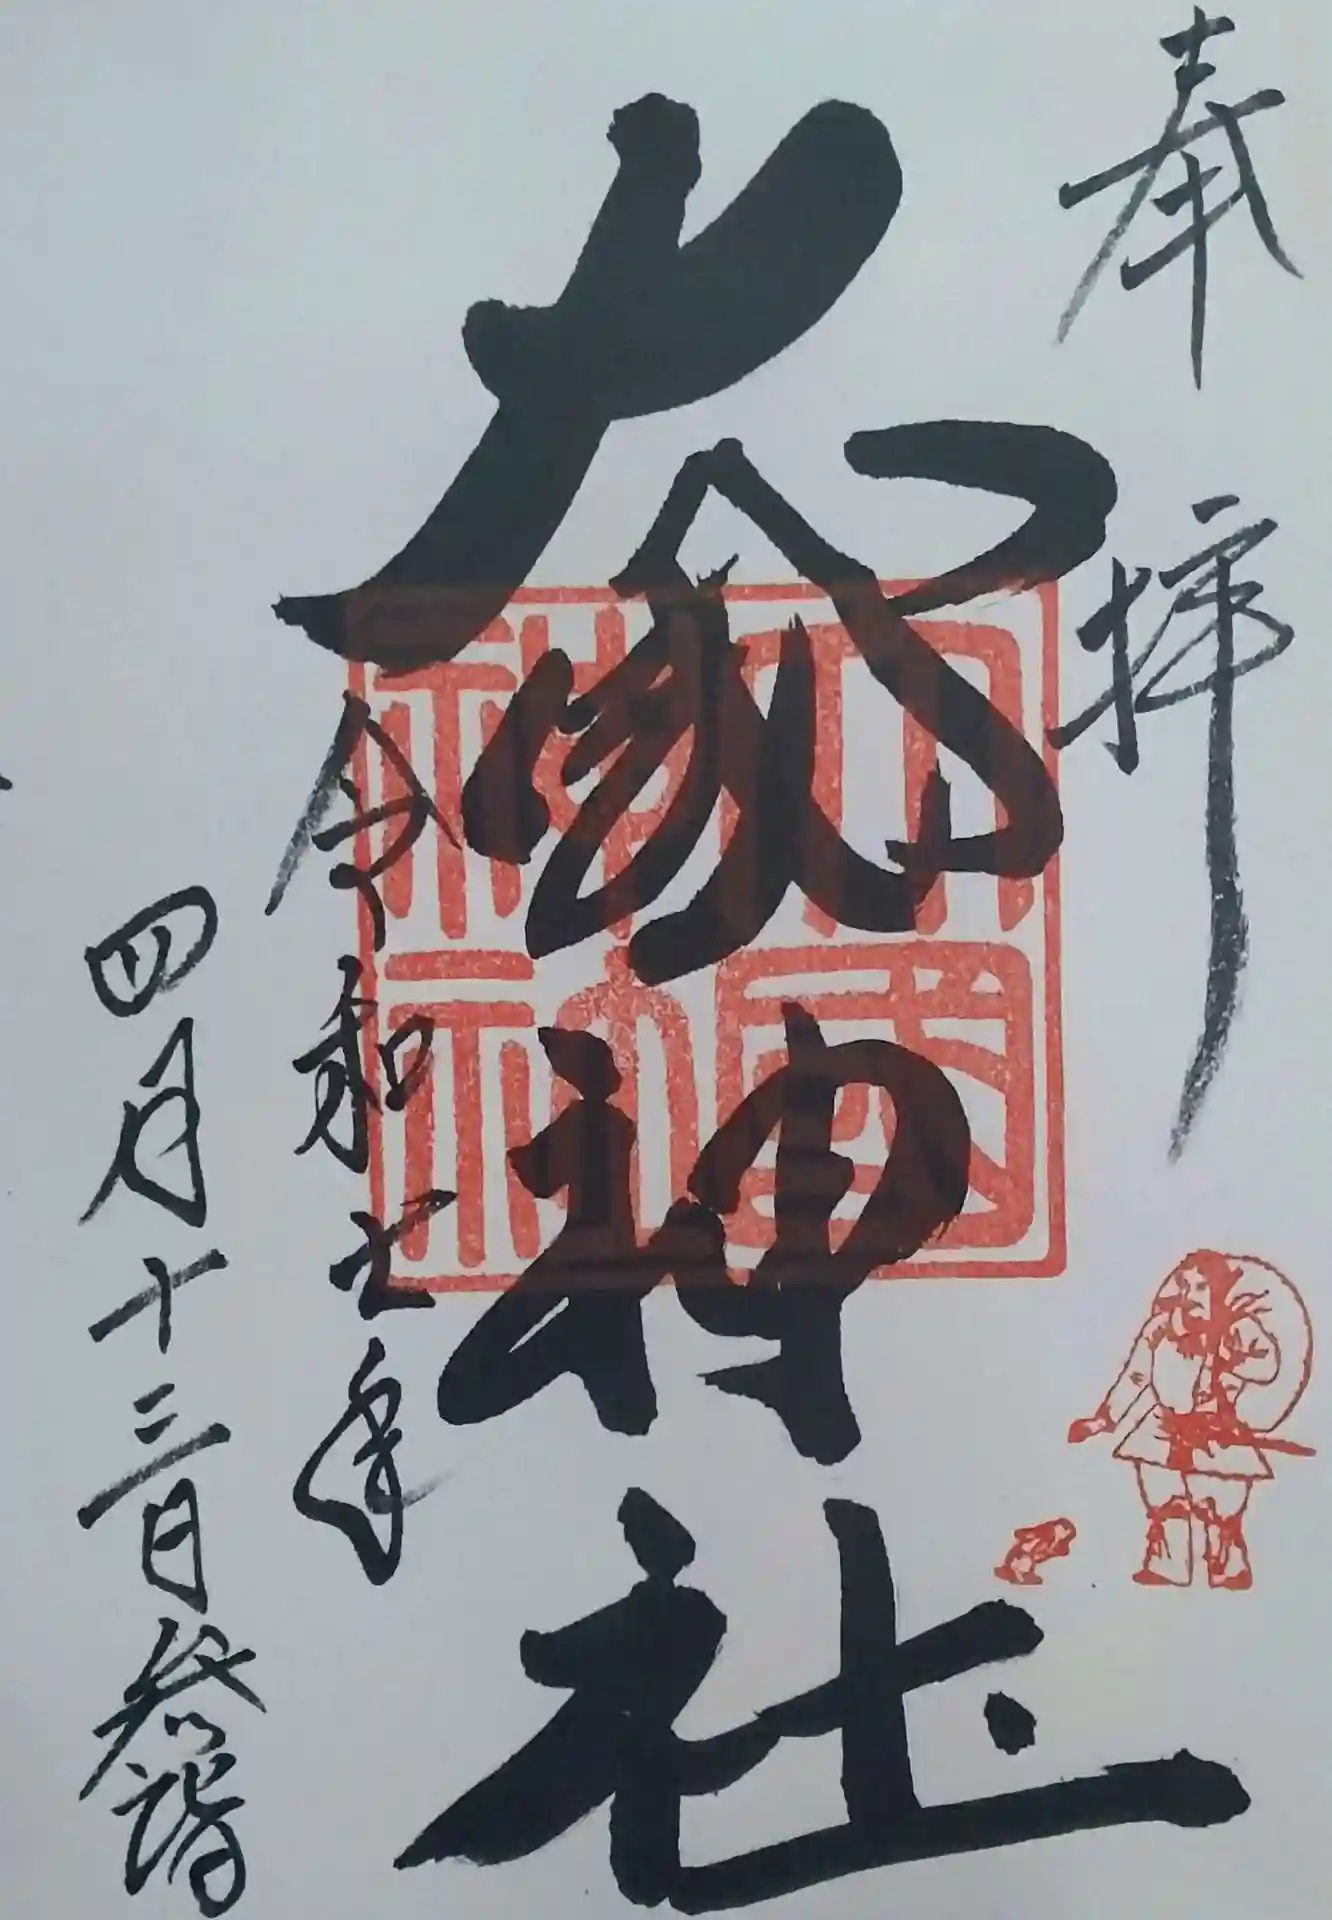 奉拝
大國神社
令和七年
四月十三日参詣